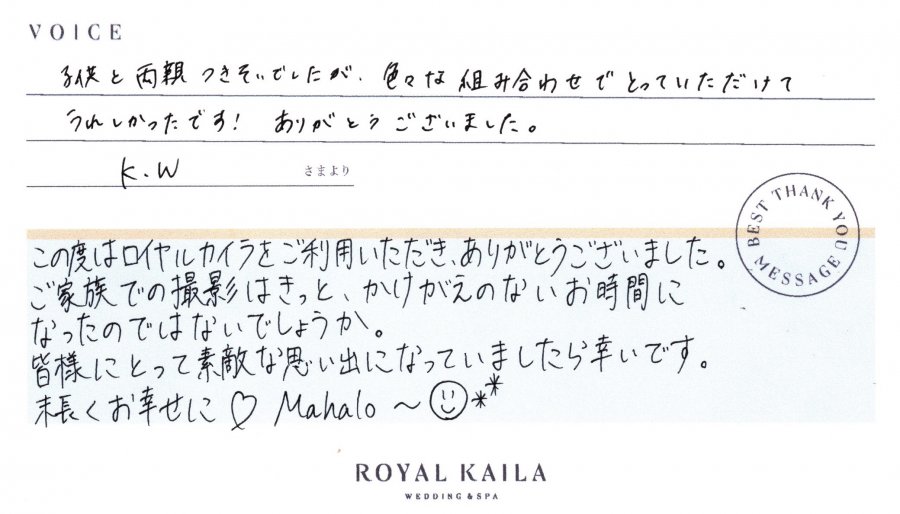 VOICE
子供と両親つきそいでしたが、色々な組み合わせでとっていただけて
うれしかったです！ ありがとうございました。
K.W さまより
BEST THANK YOU MESSAGE
この度はロイヤルカイラをご利用いただき、ありがとうございました。
ご家族での撮影はきっと、かけがえのないお時間に
なったのではないでしょうか。
皆様にとって素敵な思い出になっていましたら幸いです。
末長くお幸せに♡ Mahalo～☺**
ROYAL KAILA
WEDDING & SPA